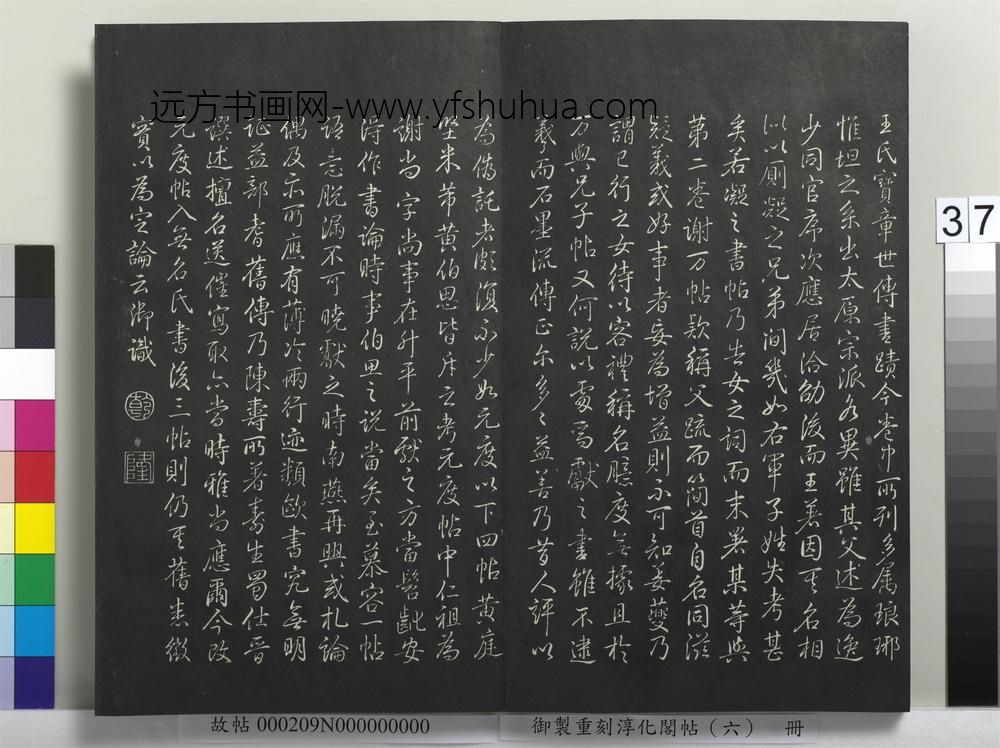 王氏寶章世傳書蹟今卷中所列多属琅琊
惟坦之系出太原宗派各異雖其父述為逸
少同官序次應居洽劭後而王著因其名相
似以廁凝之兄弟間幾如右軍子姓失考甚
矣若凝之書帖乃告女之詞而末署某等與
第二卷謝万帖款稱父疏而簡首自名同滋
疑義或好事者妄為增益則不可知姜夔乃
謂已行之女待以客禮稱名臆度無據且於
万與兄子帖又何說以處焉獻之書雖不逮
羲而石墨流傳正尔多多益善乃昔人評以
為偽託者頗復不少如元度以下四帖黄庭
堅米芾黄伯思皆斥之考元度帖中仁祖為
謝尚字尚事在升平前獻之方當髫齔安
得作書論時事伯思之說當矣至慕容一帖
語意脫漏不可曉獻之時南燕再興或札論
偶及亦所應有薄冷兩行迹類歐書究無明
证益部耆舊傳乃陳壽所著壽生蜀仕晋
譔述擅名送催寫取六當時雅尚應爾今改
元度帖入無名氏書後三帖則仍其舊悉徵
實以為定論云御識
乾
隆
远方书画网-www.yfshuhua.com
37
故帖 000209N000000000
御製重刻淳化閣帖（六） 冊